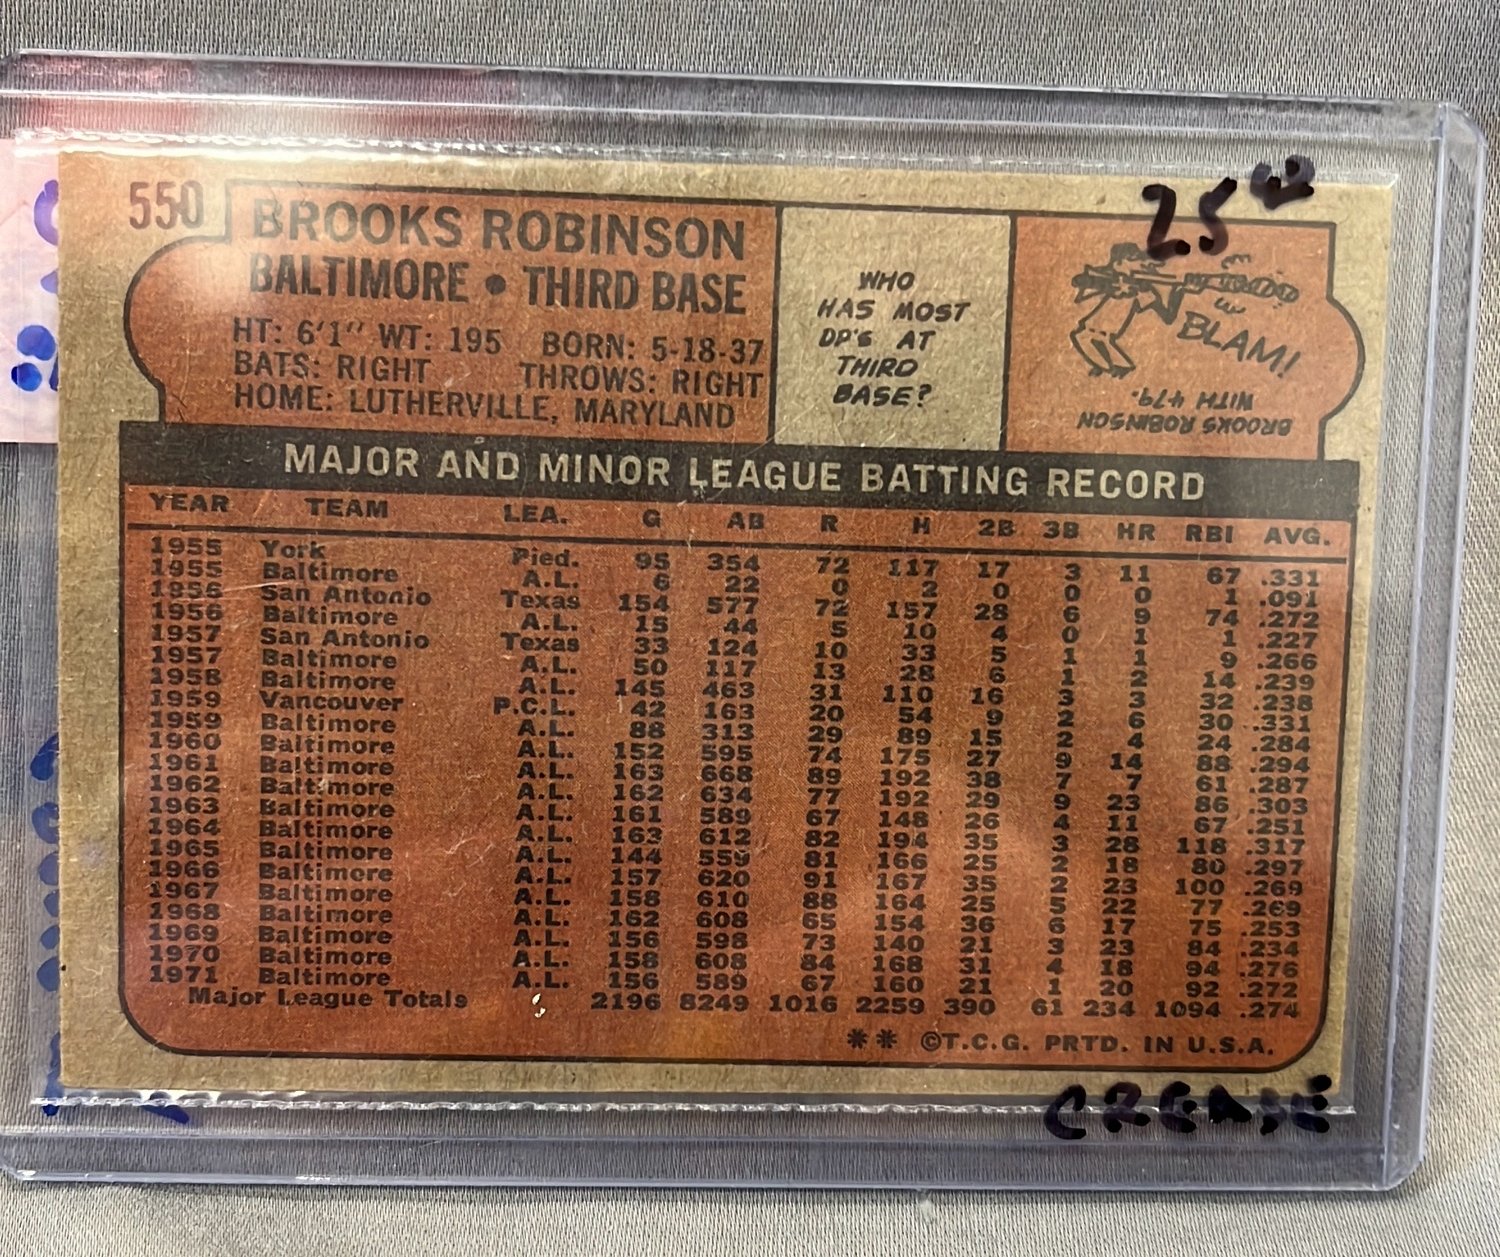 25
550
BROOKS ROBINSON
BALTIMORE • THIRD BASE
HT: 6'1" WT: 195 BORN: 5-18-37
BATS: RIGHT THROWS: RIGHT
HOME: LUTHERVILLE, MARYLAND
WHO
HAS MOST
DP'S AT
THIRD
BASE?
BLAM!
BROOKS ROBINSON
WITH 479.
MAJOR AND MINOR LEAGUE BATTING RECORD
YEAR TEAM LEA. G AB R H 2B 3B HR RBI AVG.
1955 York Pied. 95 354 72 117 17 3 11 67 .331
1955 Baltimore A.L. 6 22 0 2 0 0 0 1 .091
1956 San Antonio Texas 154 577 72 157 28 6 9 74 .272
1956 Baltimore A.L. 15 44 5 10 4 0 1 1 .227
1957 San Antonio Texas 33 124 10 33 5 1 1 9 .266
1957 Baltimore A.L. 50 117 13 28 6 1 2 14 .239
1958 Baltimore A.L. 145 463 31 110 16 3 3 32 .238
1959 Vancouver P.C.L. 42 163 20 54 9 2 6 30 .331
1959 Baltimore A.L. 88 313 29 89 15 2 4 24 .284
1960 Baltimore A.L. 152 595 74 175 27 9 14 88 .294
1961 Baltimore A.L. 163 668 89 192 38 7 7 61 .287
1962 Baltimore A.L. 162 634 77 192 29 9 23 86 .303
1963 Baltimore A.L. 161 589 67 148 26 4 11 67 .251
1964 Baltimore A.L. 163 612 82 194 35 3 28 118 .317
1965 Baltimore A.L. 144 559 81 166 25 2 18 80 .297
1966 Baltimore A.L. 157 620 91 167 35 2 23 100 .269
1967 Baltimore A.L. 158 610 88 164 25 5 22 77 .269
1968 Baltimore A.L. 162 608 65 154 36 6 17 75 .253
1969 Baltimore A.L. 156 598 73 140 21 3 23 84 .234
1970 Baltimore A.L. 158 608 84 168 31 4 18 94 .276
1971 Baltimore A.L. 156 589 67 160 21 1 20 92 .272
Major League Totals 2196 8249 1016 2259 390 61 234 1094 .274
** ©T.C.G. PRTD. IN U.S.A.
CREASE